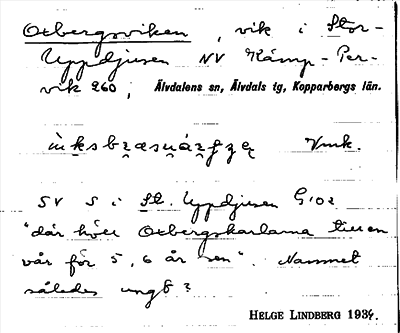 Oxbergsviken, vik i Stor-
Uppdjusen NV Kämp-Per-
vik 260; Älvdalens sn, Älvdals tg, Kopparbergs län.
Vmk.
SV S i St. Uppdjusen G:o2
"där höll Oxbergskarlarna till en
vår för 5, 6 år sen". Namnet
således ungt?
HELGE LINDBERG 1934.